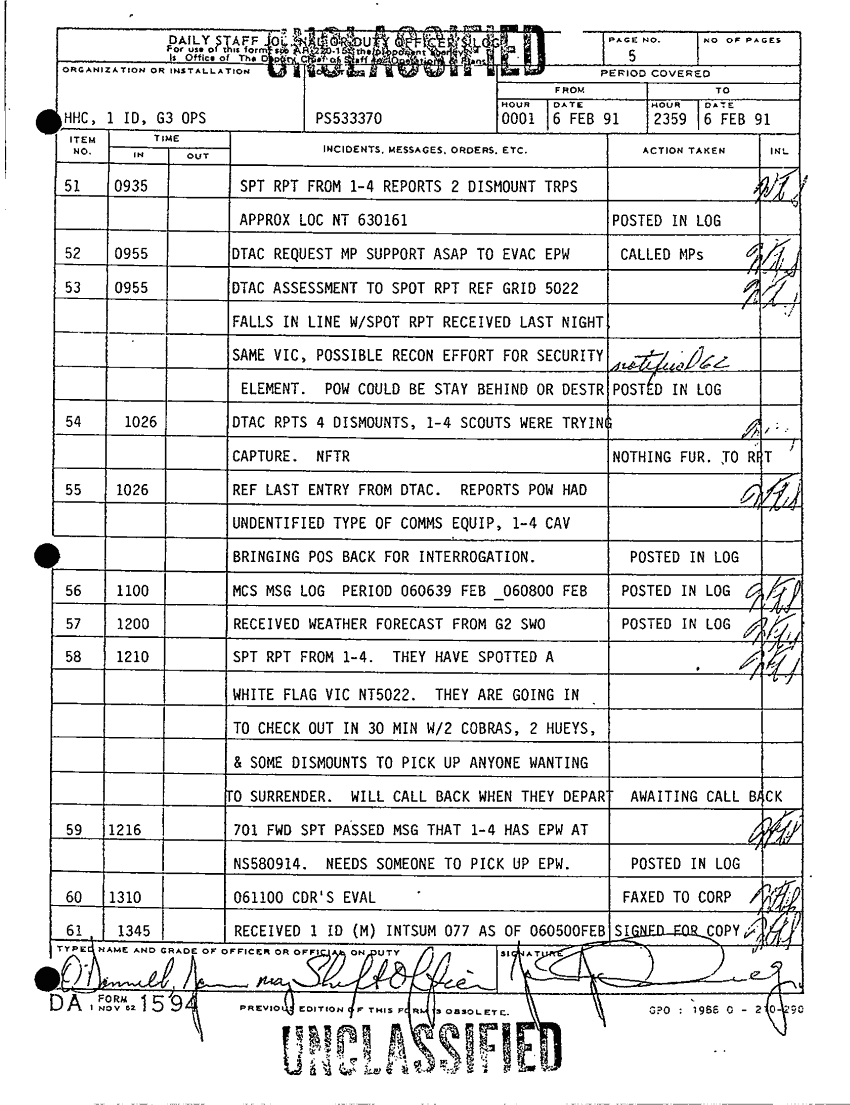 UNCLASSIFIED
DAILY STAFF JOURNAL OR DUTY OFFICER'S LOG
For use of this form, see AR 220-15; the proponent agency
is Office of The Deputy Chief of Staff for Operations & Plans.
PAGE NO.
5
NO OF PAGES
ORGANIZATION OR INSTALLATION
PERIOD COVERED
FROM TO
HOUR DATE HOUR DATE
HHC, 1 ID, G3 OPS PS533370 0001 6 FEB 91 2359 6 FEB 91
ITEM NO. TIME IN OUT INCIDENTS, MESSAGES, ORDERS, ETC. ACTION TAKEN INL
51 0935 SPT RPT FROM 1-4 REPORTS 2 DISMOUNT TRPS
APPROX LOC NT 630161 POSTED IN LOG
52 0955 DTAC REQUEST MP SUPPORT ASAP TO EVAC EPW CALLED MPs
53 0955 DTAC ASSESSMENT TO SPOT RPT REF GRID 5022
FALLS IN LINE W/SPOT RPT RECEIVED LAST NIGHT
SAME VIC, POSSIBLE RECON EFFORT FOR SECURITY notified G2
ELEMENT. POW COULD BE STAY BEHIND OR DESTR POSTED IN LOG
54 1026 DTAC RPTS 4 DISMOUNTS, 1-4 SCOUTS WERE TRYING
CAPTURE. NFTR NOTHING FUR. TO RPT
55 1026 REF LAST ENTRY FROM DTAC. REPORTS POW HAD
UNDENTIFIED TYPE OF COMMS EQUIP, 1-4 CAV
BRINGING POS BACK FOR INTERROGATION. POSTED IN LOG
56 1100 MCS MSG LOG PERIOD 060639 FEB _060800 FEB POSTED IN LOG
57 1200 RECEIVED WEATHER FORECAST FROM G2 SWO POSTED IN LOG
58 1210 SPT RPT FROM 1-4. THEY HAVE SPOTTED A
WHITE FLAG VIC NT5022. THEY ARE GOING IN
TO CHECK OUT IN 30 MIN W/2 COBRAS, 2 HUEYS,
& SOME DISMOUNTS TO PICK UP ANYONE WANTING
TO SURRENDER. WILL CALL BACK WHEN THEY DEPART AWAITING CALL BACK
59 1216 701 FWD SPT PASSED MSG THAT 1-4 HAS EPW AT
NS580914. NEEDS SOMEONE TO PICK UP EPW. POSTED IN LOG
60 1310 061100 CDR'S EVAL FAXED TO CORP
61 1345 RECEIVED 1 ID (M) INTSUM 077 AS OF 060500FEB SIGNED FOR COPY
TYPED NAME AND GRADE OF OFFICER OR OFFICIAL ON DUTY SIGNATURE
Shift Officer
DA FORM 1 NOV 62 1594 PREVIOUS EDITION OF THIS FORM IS OBSOLETE. GPO : 1986 O - 270-290
UNCLASSIFIED